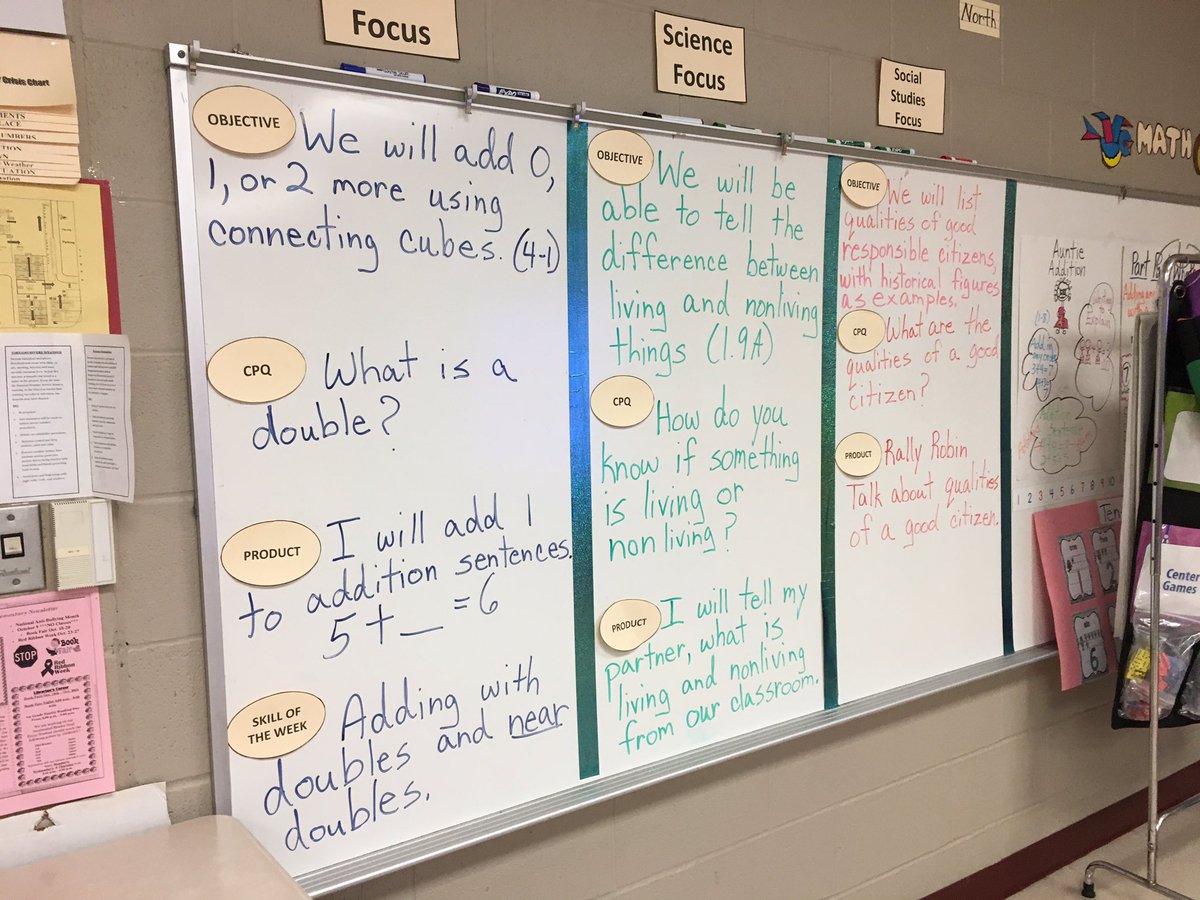 Focus
Science
Focus
Social
Studies
Focus
North
MATH
OBJECTIVE
We will add 0,
1, or 2 more using
connecting cubes. (4-1)
CPQ
What is a
double?
PRODUCT
I will add 1
to addition sentences.
5 + __ = 6
SKILL OF
THE WEEK
Adding with
doubles and near
doubles.
OBJECTIVE
We will be
able to tell the
difference between
living and nonliving
things (1.9A)
CPQ
How do you
know if something
is living or
nonliving?
PRODUCT
I will tell my
partner, what is
living and nonliving
from our classroom.
OBJECTIVE
We will list
qualities of good
responsible citizens,
with historical figures
as examples.
CPQ
What are the
qualities of a good
citizen?
PRODUCT
Rally Robin
Talk about qualities
of a good citizen.
Auntie
Addition
1 2 3 4 5 6 7 8 9 10
Center
Games
Crisis Chart
National Anti-Bullying Month
STOP
Book
Fair
Red Ribbon
Week